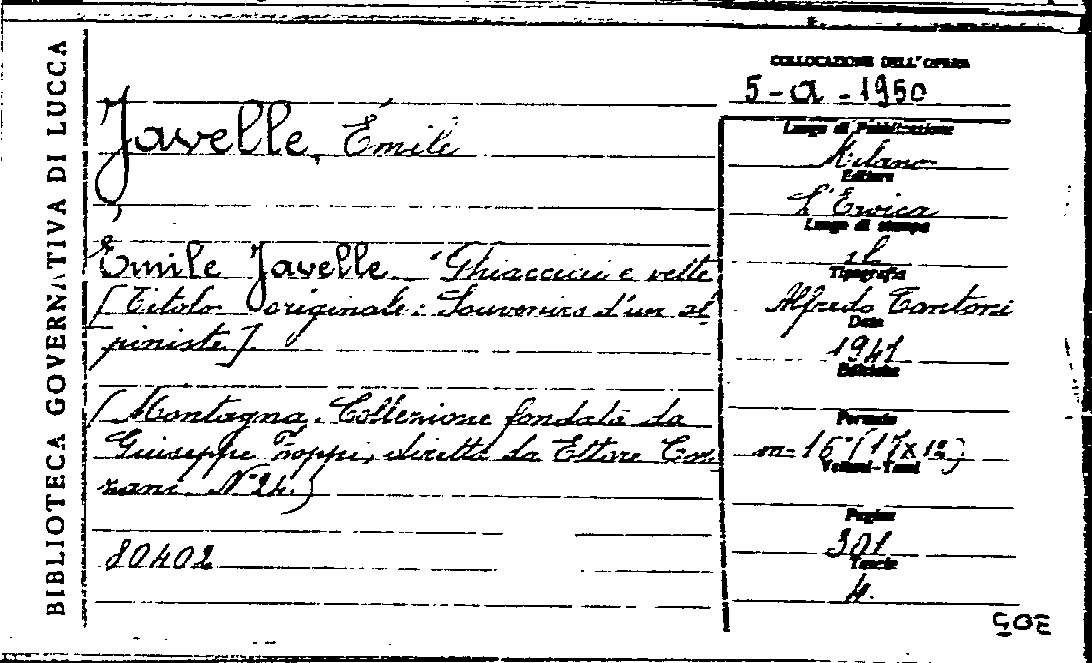 BIBLIOTECA GOVERNATIVA DI LUCCA
Javelle, Émile
Émile Javelle "Ghiacciai e vette
[Titolo originale: Souvenirs d'un al-
piniste].
(Montagna. Collezione fondata da
Giuseppe Zoppi, diretta da Ettore Coz-
zani. N° 24.)
80402
COLLOCAZIONE DELL'OPERA
5-a-1950
Luogo di Pubblicazione
Milano
Editore
L'Eroica
Luogo di stampa
id.
Tipografia
Alfredo Cantoni
Data
1941
Edizione
Formato
in-16° (17x12)
Volumi-Tomi
Pagine
301
Tavole
4.
305